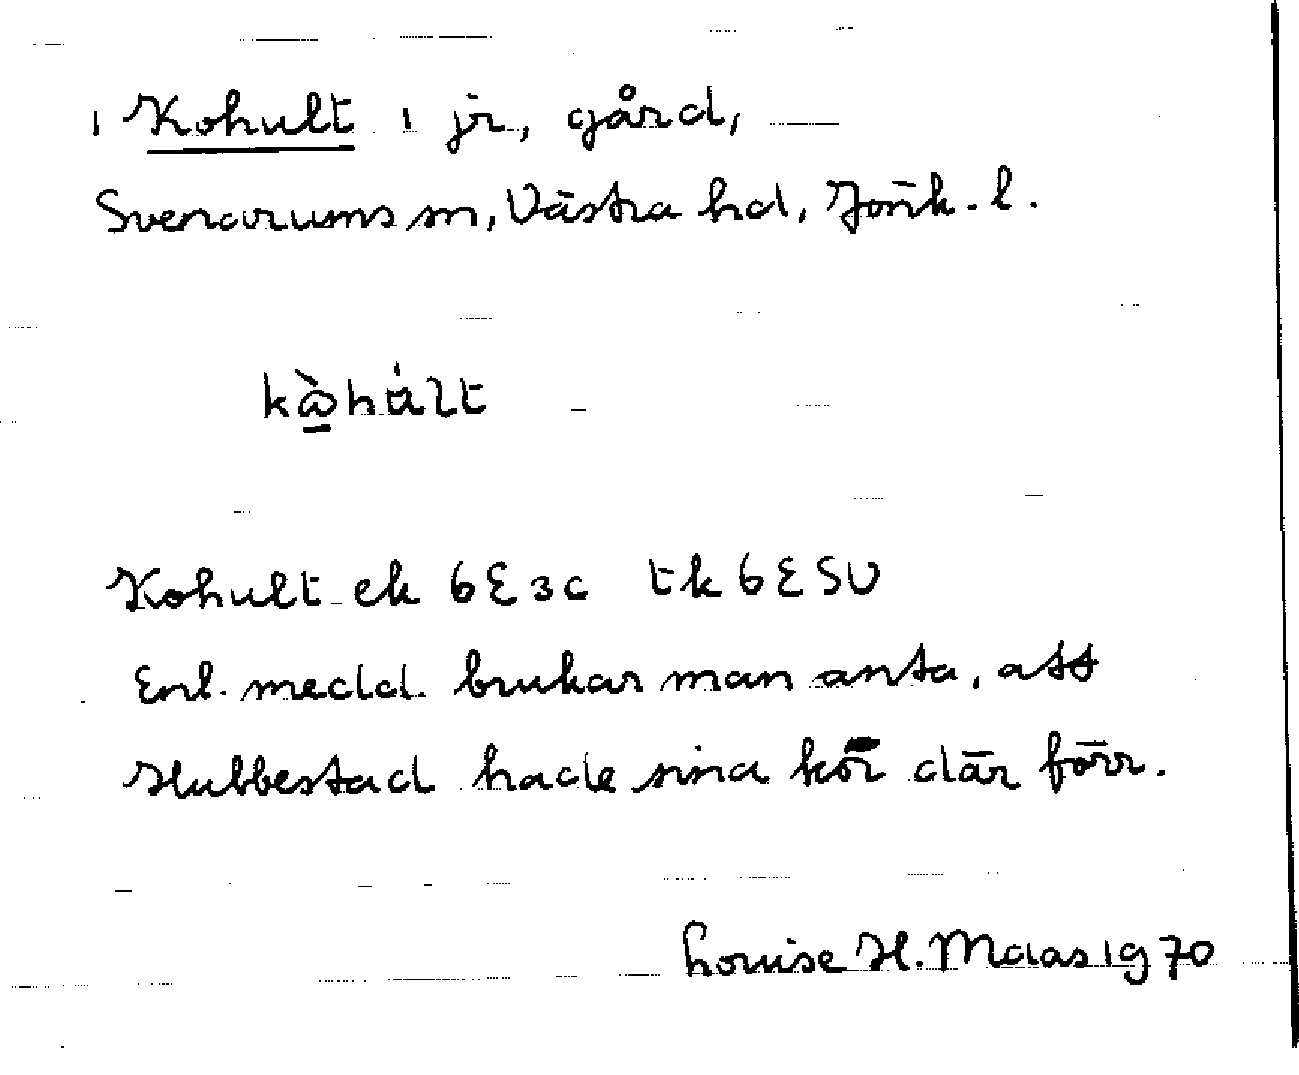 1 Kohult 1 jr, gård,
Svenarums sn, Västra hd, Jönk. l.
Kohult ek 6E3c tk 6E SV
Enl. medd. brukar man anta, att
Hubbestad hade sina kor där förr.
Louise H. Maas 1970